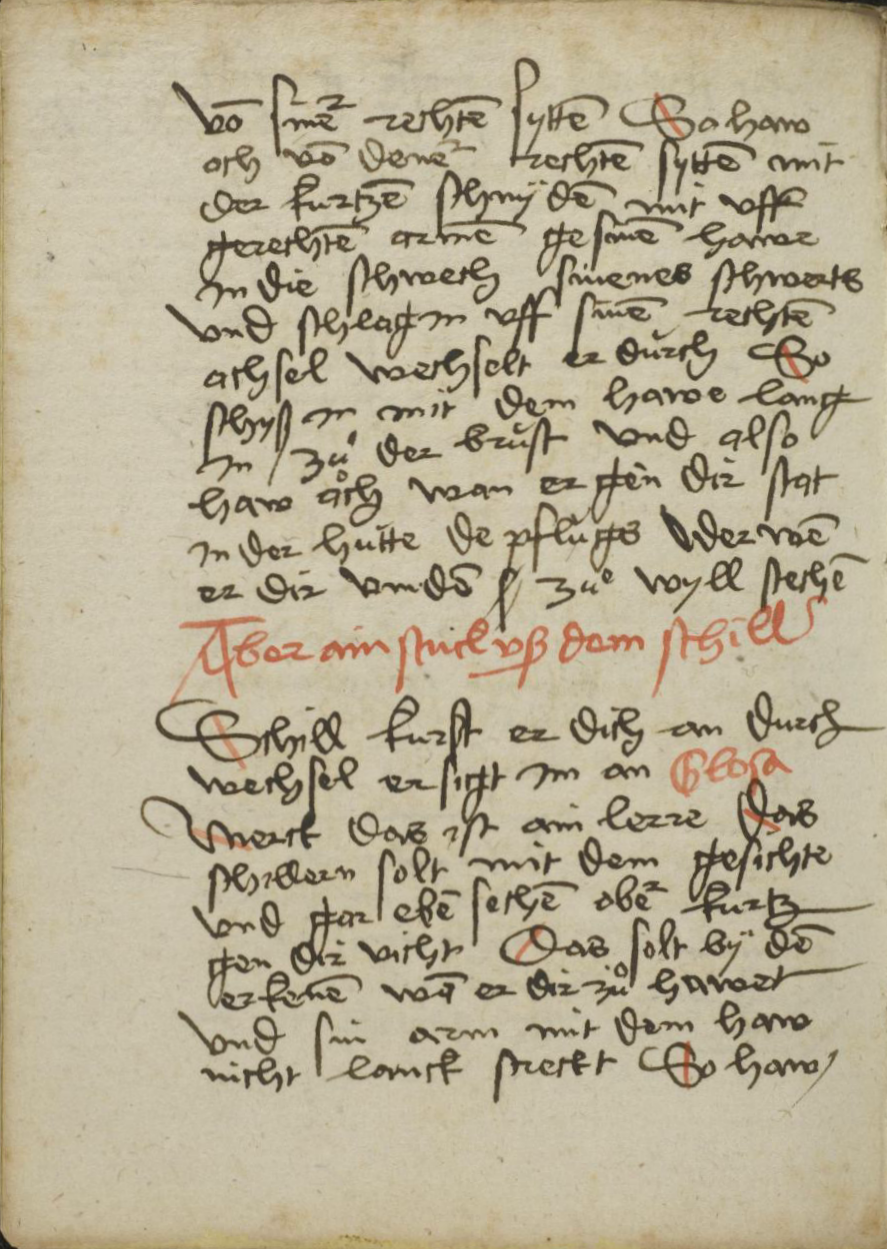 võ sineͬ rechtē syttē So haw
och võ deneͬ rechtē syttē mit
der kurtzē schnÿdē mit vff
gerechtē armē gesinē hawe
In die schwech sinenes schwerts
vnd schlag in vff sinē rechtē
achsel wechselt er durch So
schyß in mit dem hawe lang
In zuͦ der brust vnd also
haw aͦch wan er gen dir stat
In der hutte de pflugs oder wē
er dir vnndē zuͦ wyll stechē
Aber ain stuck vß dem schill
Schill kurst er dich an durch
wechsel er sigt im an Glosa
Merck das ist ain lerre das
schillern solt mit dem gesichte
vnd gar ebē sechē obeͬ kurtz
gen dir vicht Das solt bÿ dē
erkenē wā er dir zuͦ hawet
vnd sin arm mit dem haw
nicht lanck streckt So haw